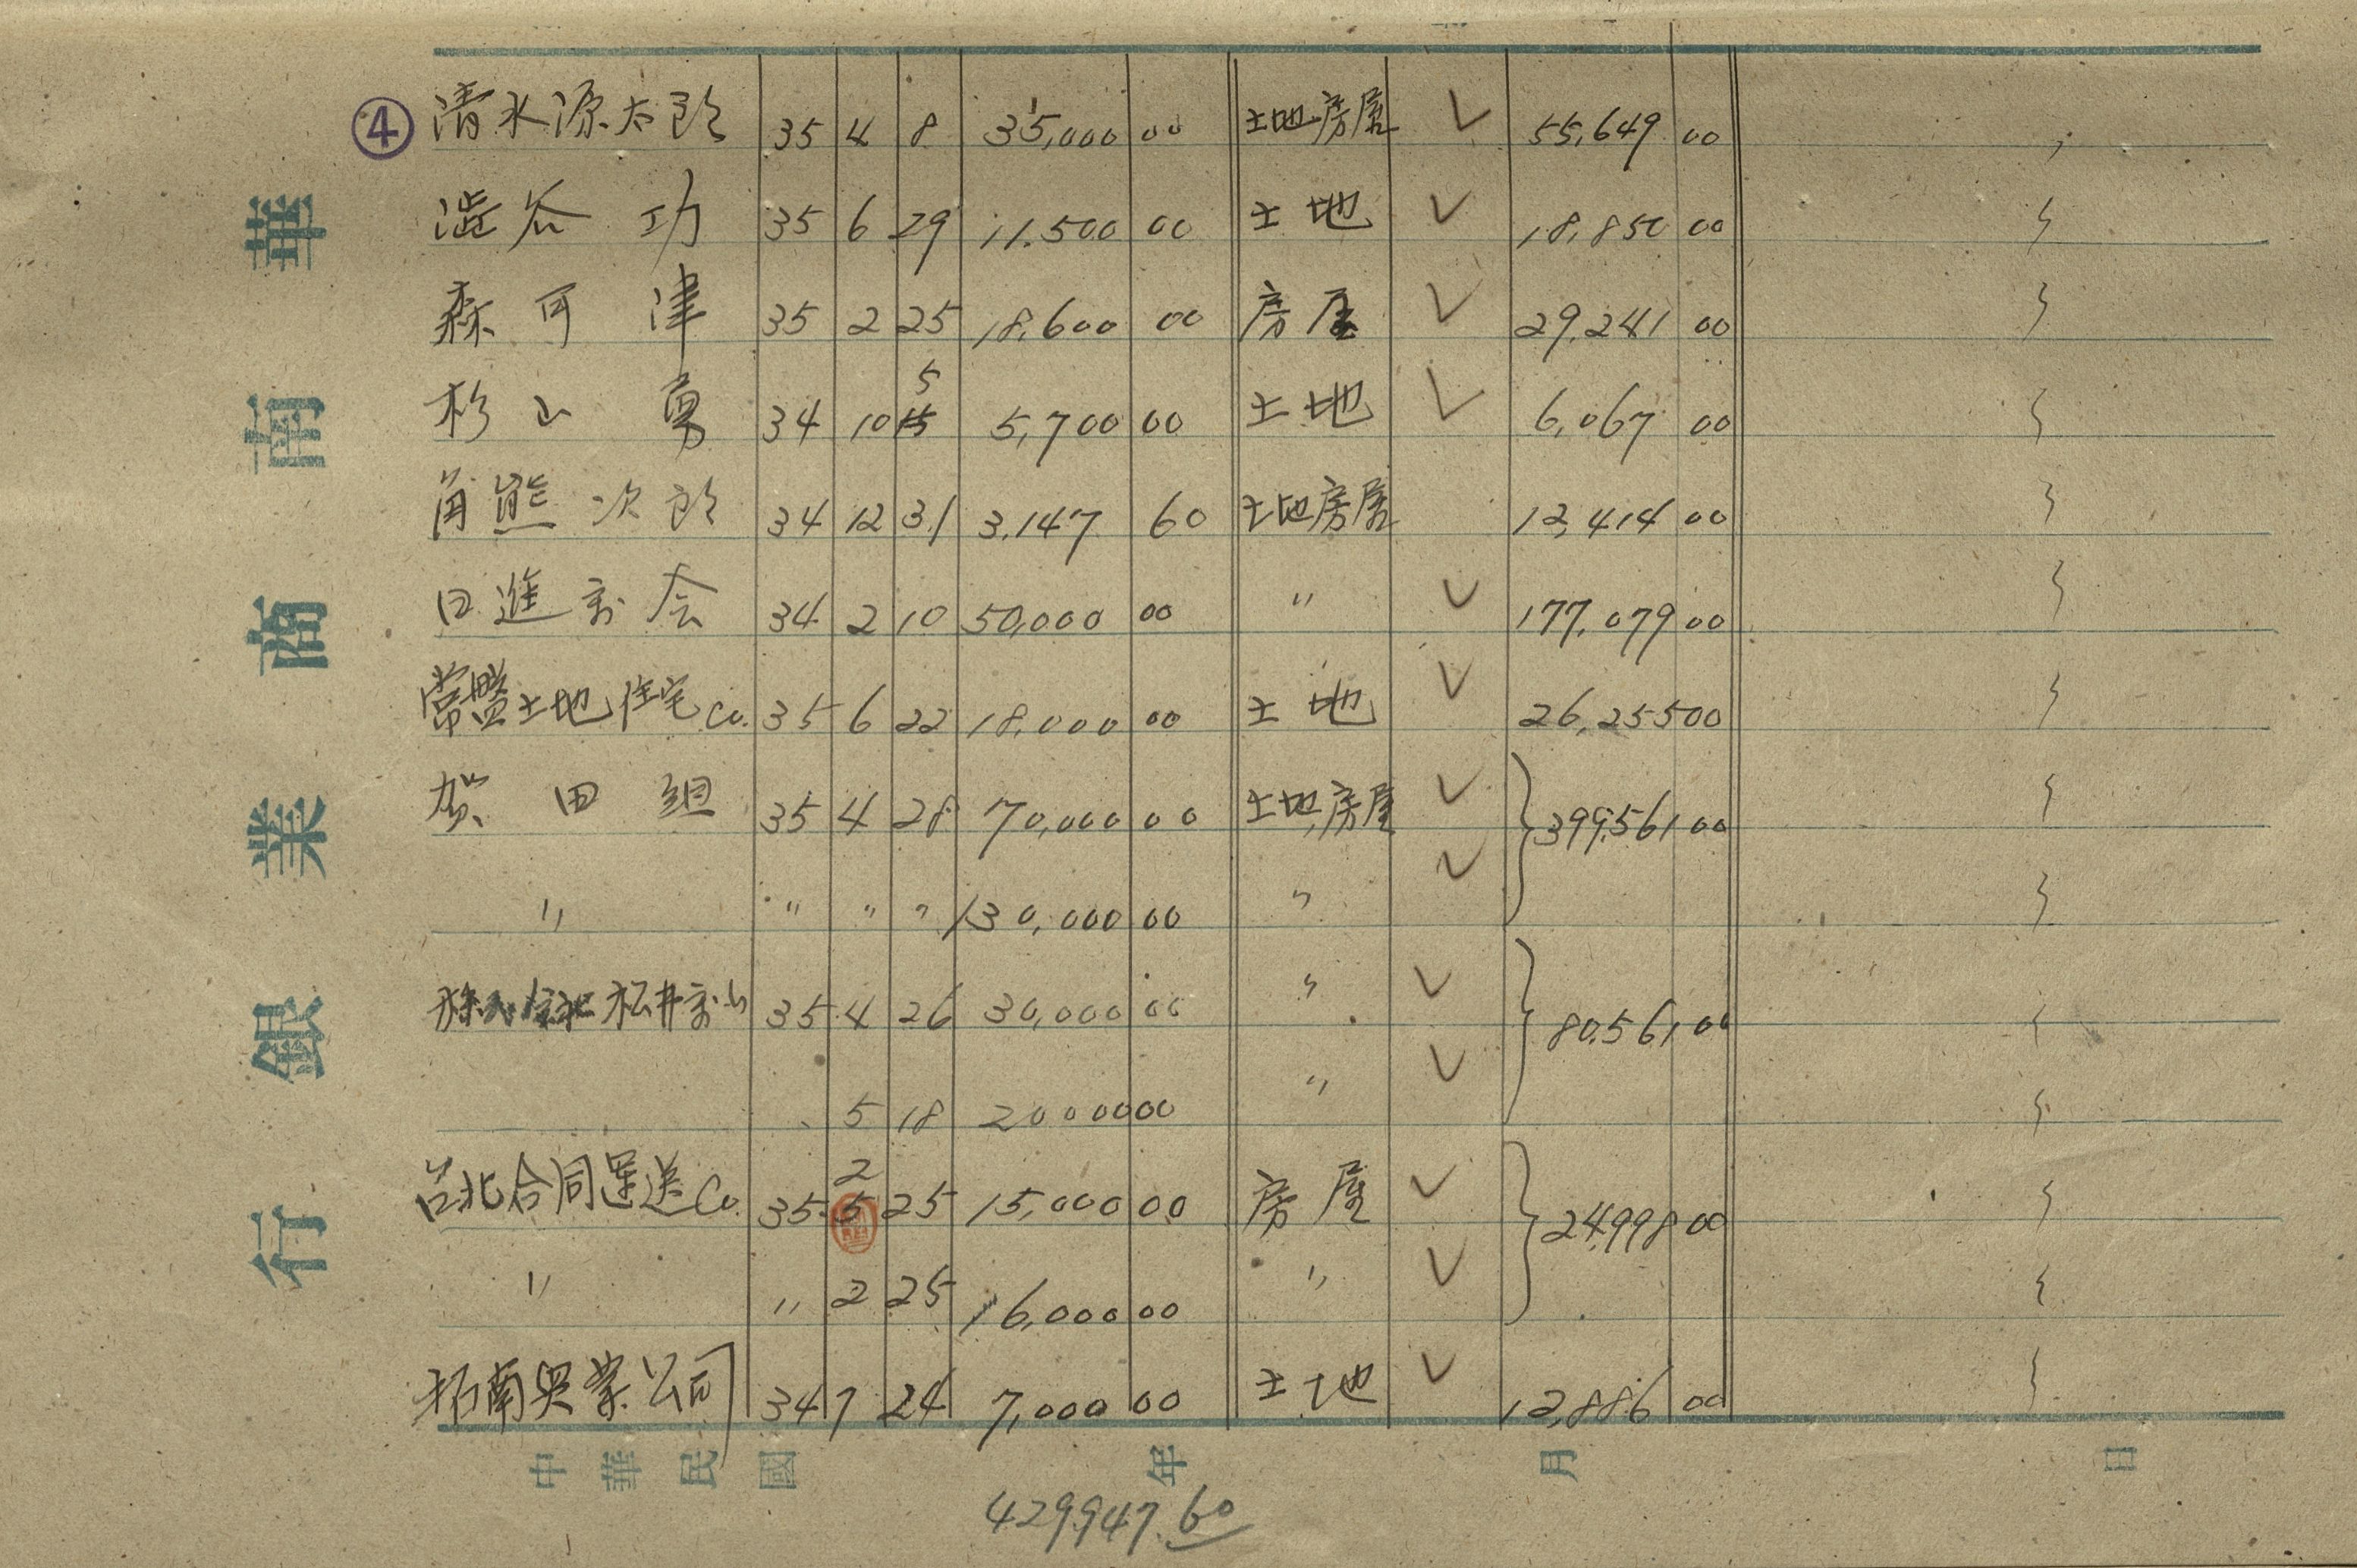 ④ 清水源太郎 35 4 8 35,000 00 土地房屋 ✓ 55,649 00 〃
澁谷 功 35 6 29 11.500 00 土地 ✓ 18,850 00 〃
森 可 津 35 2 25 18,600 00 房屋 ✓ 29,241 00 〃
5
杉山 勇 34 10 15 5,700 00 土地 ✓ 6,067 00 〃
角熊次郎 34 12 31 3,147 60 土地房屋 12,414 00 〃
日進商会 34 2 10 50,000 00 〃 ✓ 177,079 00 〃
常盤土地住宅Co. 35 6 22 18,000 00 土地 ✓ 26,255 00 〃
賀田組 35 4 28 70,000 00 土地房屋 ✓ 399,561 00 〃
〃 〃 〃 〃 130,000 00 〃 ✓ 〃
松井 35 4 26 30,000 00 〃 ✓ 80,561 00 〃
5 18 20000 00 〃 ✓ 〃
2
台北合同運送Co. 35 5 25 15,000 00 房屋 ✓ 24,998 00 〃
〃 〃 2 25 16,000 00 〃 ✓ 〃
拓南興業公司 34 7 24 7,000 00 土地 ✓ 12,886 00 〃
華南商業銀行
中華民國 年 月 日
429,947.60